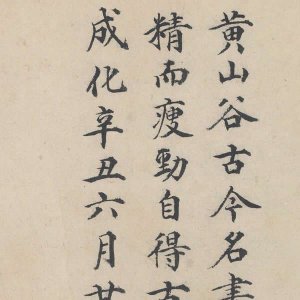 黄山谷古今名書
精而瘦勁自得古
成化辛丑六月廿